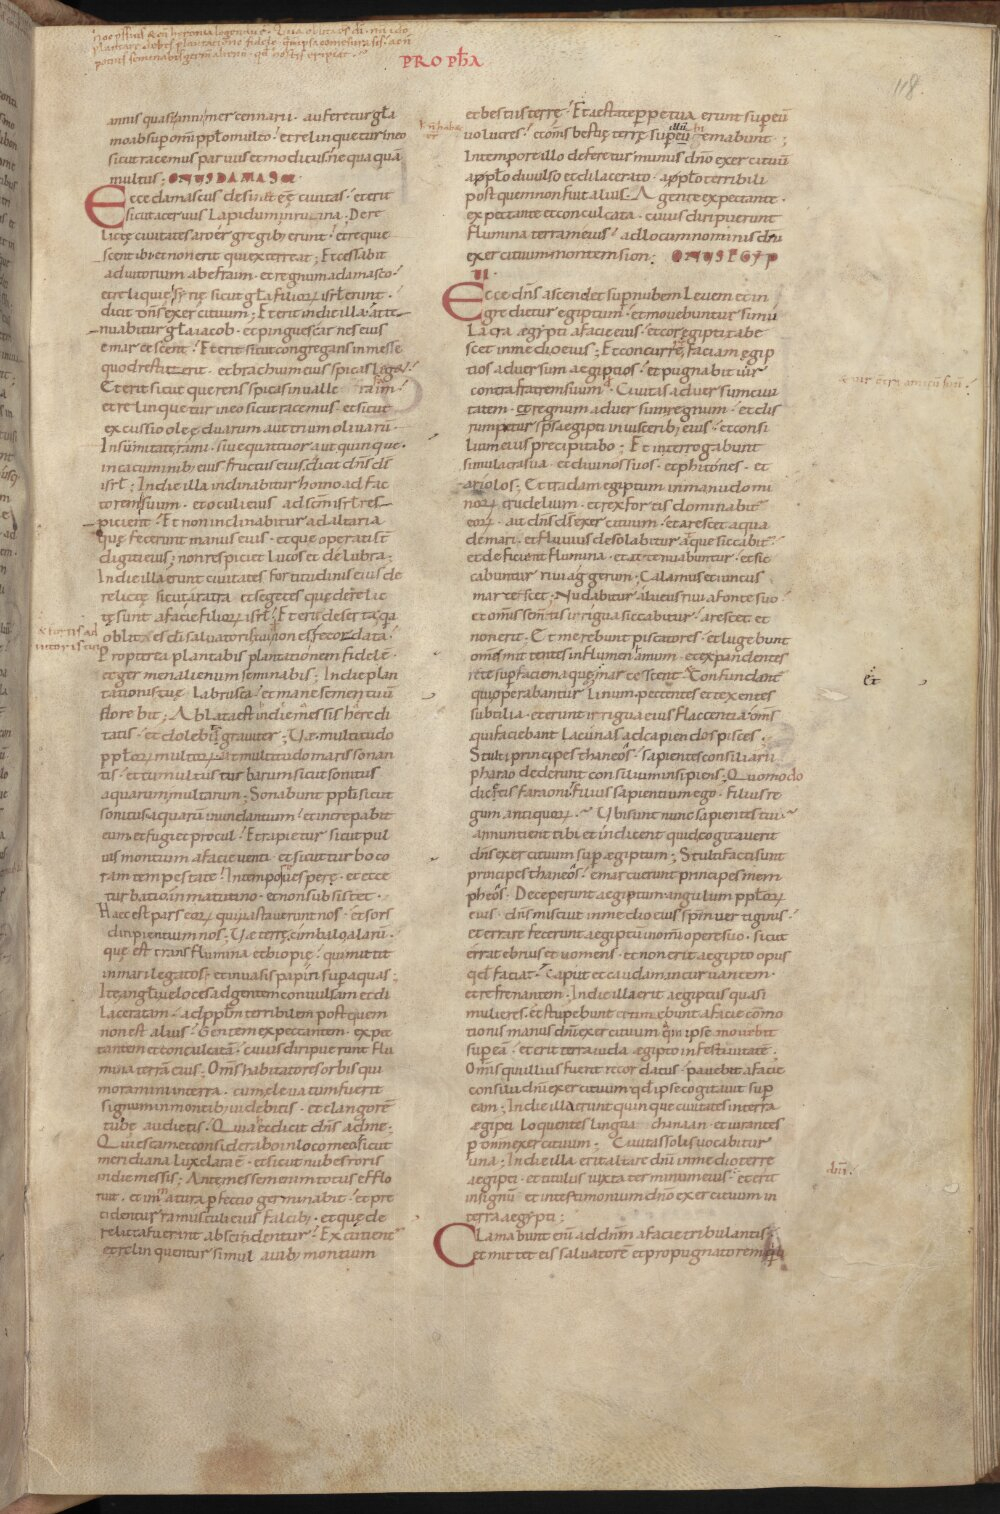 PROPHA
118
annis quasi anni mercennarii · auferetur gła
moab sup om̄i pplo multo · et relinquetur in eo
sicut racemus parvus et modicus nequaquā
multus; ONUS DAMASCI
Ecce damascus desinet eē civitas · et erit
sicut acervus lapidum in ruina · Dere
lictę civitates aroer gregib; erunt · et requie
scent ibi et non erit qui exterreat; Et cessabit
adiutorium ab efraim · et regnum a damasco ·
et reliquię syrię sicut gła filiorꝝ isrł erunt ·
dicit dn̄s exercituum; Et erit in die illa · atte
nuabitur gła iacob · et pinguescat nes eius
emarcescent · Et erit sicut congregans in messe
quod restiterit · et brachium eius spicas leget;
Et erit sicut querens spicas in valle raim ·
et relinquetur in eo sicut racemus · et sicut
excussio oleę duarum aut trium olivarū ·
In sūmitate rami · sive quattuor aut quinque ·
in cacuminib; eius fructus eius dicit dn̄s dš
isrł; In die illa inclinabitur homo ad fac
torem suum · et oculi eius ad scm̄ isrł res
picient · Et non inclinabitur ad altaria
quę fecerunt manus eius · et quę operati st̄
digiti eius; non respiciet lucos et delubra;
In die illa erunt civitates fortitudinis eius de
relictę sicut aratra et segetes quę derelic
tę sunt a facie filiorꝝ isrł; Et erit deserta q̄a
oblita es di salvatoris tui et non es recordata ·
Propterea plantabis plantationem fidelē ·
et germen alienum seminabis; In die plan
tationis tuę labrusca · et mane semen tuū
florebit; Ablata est in die messis here di
tatis · et dolebit graviter; Uę multitudo
pplorꝝ multorꝝ · ut multitudo maris sonan
tis · et tumultus turbarum sicut sonitus
aquarum multarum; Sonabunt ppłi sicut
sonitus aquarū inundantium · et increpabit
eum et fugiet procul · Et rapietur sicut pul
vis montium a facie venti · et sicut turbo co
ram tempestate · In tempore vesperę · et ecce
turbatio; in matutino · et non subsistet ·
Haec est pars eorꝝ qui vastaverunt nos · et sors
diripientium nos; Uę terrę cimbalo alarū ·
quę est trans flumina ethiopię · qui mittit
in mari legatos · et in vasis papiri sup aquas;
Ite angłi veloces ad gentem convulsam et di
laceratam · ad pplm terribilem post quem
non est alius · Gentem expectantem · expec
tantem et conculcatā · cuius diripuerunt flu
mina terrā eius; Om̄s habitatores orbis qui
moramini in terra · cum elevatum fuerit
signum in montib; videbitis · et clangorē
tubę audietis; Quia hęc dicit dn̄s ad me;
Quiescam et considerabo in loco meo sicut
meridiana lux clara ē · et sicut nubes roris
in die messis; Ante messem enim totus efflo
ruit · et immatura pfectio germinabit · et pre
cidentur ramusculi eius falcib; · et quę de
relicta fuerint abscindentur · Excutient
et relinquentur simul avib; montium
et bestiis terrę · Et aestate perpetua erunt sup eū
volucres · et om̄s bestię terrę sup eū hiemabunt;
In tempore illo deferetur munus dn̄o exercituū
a pplo divulso et dilacerato · a pplo terribili
post quem non fuit alius · A gente expectante ·
expectante et conculcata · cuius diripuerunt
flumina terram eius · ad locum nominis dn̄i
exercituum montem sion; ONUS EGYP
TI
Ecce dn̄s ascendet sup nubem levem et in
gredietur egiptum · et movebuntur simu
lacra ęgypti a facie eius · et cor egipti tabe
scet in medio eius; Et concurrere faciam egip
tios adversum aegiptios · et pugnabit vir
contra fratrem suum · Civitas adversum civi
tatem · et regnum adversum regnum · et dis
rumpetur sp̄s aegipti in visceribus eius · et consi
lium eius precipitabo; Et interrogabunt
simulacra sua · et divinos suos · et phitones · et
ariolos; Et tradam egiptum in manu domi
norꝝ crudelium · et rex fortis dominabitur
eorꝝ · ait dn̄s dš exercituum · et arescet aqua
de mari · et fluvius desolabitur atque siccabitur ·
et deficient flumina · et attenuabuntur · et sic
cabuntur rivi aggerum; Calamus et iuncus
marcescet · Nudabitur alveus rivi a fonte suo ·
et omnis sementis irrigua siccabitur · arescet et
non erit · Et merebunt piscatores · et lugebunt
om̄s mittentes in flumen hamum · et expandentes
rete sup faciem aquę marcescent · Confundent
qui operabantur linum · pectentes et texentes
subtilia · et erunt irrigua eius flaccentia · om̄s
qui faciebant lacunas ad capiendos pisces ·
Stulti principes thaneos · sapientes consiliarii
pharao dederunt consilium insipiens; Quomodo
dicetis faraoni · Filius sapientium ego · filius re
gum antiquorꝝ · Ubi sunt nunc sapientes tui ·
annuntient tibi et indicent quid cogitaverit
dn̄s exercituum sup ęgiptum; Stulti facti sunt
principes thaneos · emarcuerunt principes mem
pheos; Deceperunt aegiptum angulum pplorꝝ
eius · dn̄s miscuit in medio eius sp̄m vertiginis ·
et errare fecerunt aegiptū in om̄i opere suo · sicut
errat ebrius et vomens · et non erit aegipto opus
qd̄ faciat · Caput et caudam incurvantem ·
et refrenantem · In die illa erit aegiptus quasi
mulieres · et stupebunt et timebunt a facie cōmo
tionis manus dn̄i exercituum qm̄ ipse movebit
sup eā · et erit terra iuda aegipto in festivitatē ·
Om̄is qui illius fuerit recordatus · pavebit a facie
consilii dn̄i exercituum qd̄ ipse cogitavit sup
eam; In die illa erunt quinque civitates in terra
ægipti loquentes lingua chanaan · et iurantes
p dn̄m exercituum; Civitas solis vocabitur
una; In die illa erit altare dn̄i in medio terrę
aegipti · et titulus iuxta terminum eius · et erit
in signū · et in testimonium dn̄o exercituum in
terra aegypti;
Clamabunt enī ad dn̄m a facie tribulantis ·
et mittet eis salvatorē et propugnatorem
et